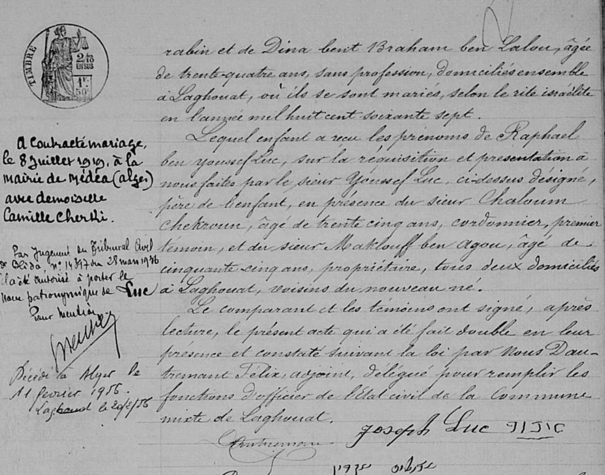 TIMBRE
rabin et de Dina bent Braham ben Lalou, âgée
de trente-quatre ans, sans profession, domiciliés ensemble
à Laghouat, où ils se sont mariés, selon le rite israëlite
en l'année mil huit cent soixante sept.
Lequel enfant a reçu les prénoms de Raphael
ben youssef Luc, sur la réquisition et présentation à
nous faites par le sieur Youssef Luc, ci-dessus désigné,
père de l'enfant, en présence du sieur Chaloum
Chekroun, âgé de trente cinq ans, cordonnier, premier
témoin, et du sieur Maklouff ben Agou, âgé de
cinquante cinq ans, propriétaire, tous deux domiciliés
à Laghouat, voisins du nouveau né.
Le comparant et les témoins ont signé, après
lecture, le présent acte qui a été fait double en leur
présence et constaté suivant la loi par Nous Dau-
tremant Félix, adjoint, délégué pour remplir les
fonctions d'officier de l'Etat civil de la Commune
mixte de Laghouat.
Joseph Luc
A contracté mariage,
le 8 Juillet 1919, à la
mairie de Médéa (alger)
avec demoiselle
Camille Cherki.
Par Jugement du Tribunal Civil
de Blida, du 28 mars 1936
a été autorisé à porter le
nom patronymique de Luc
Pour mention
Décédé à Alger le
11 février 1956.
Laghouat le